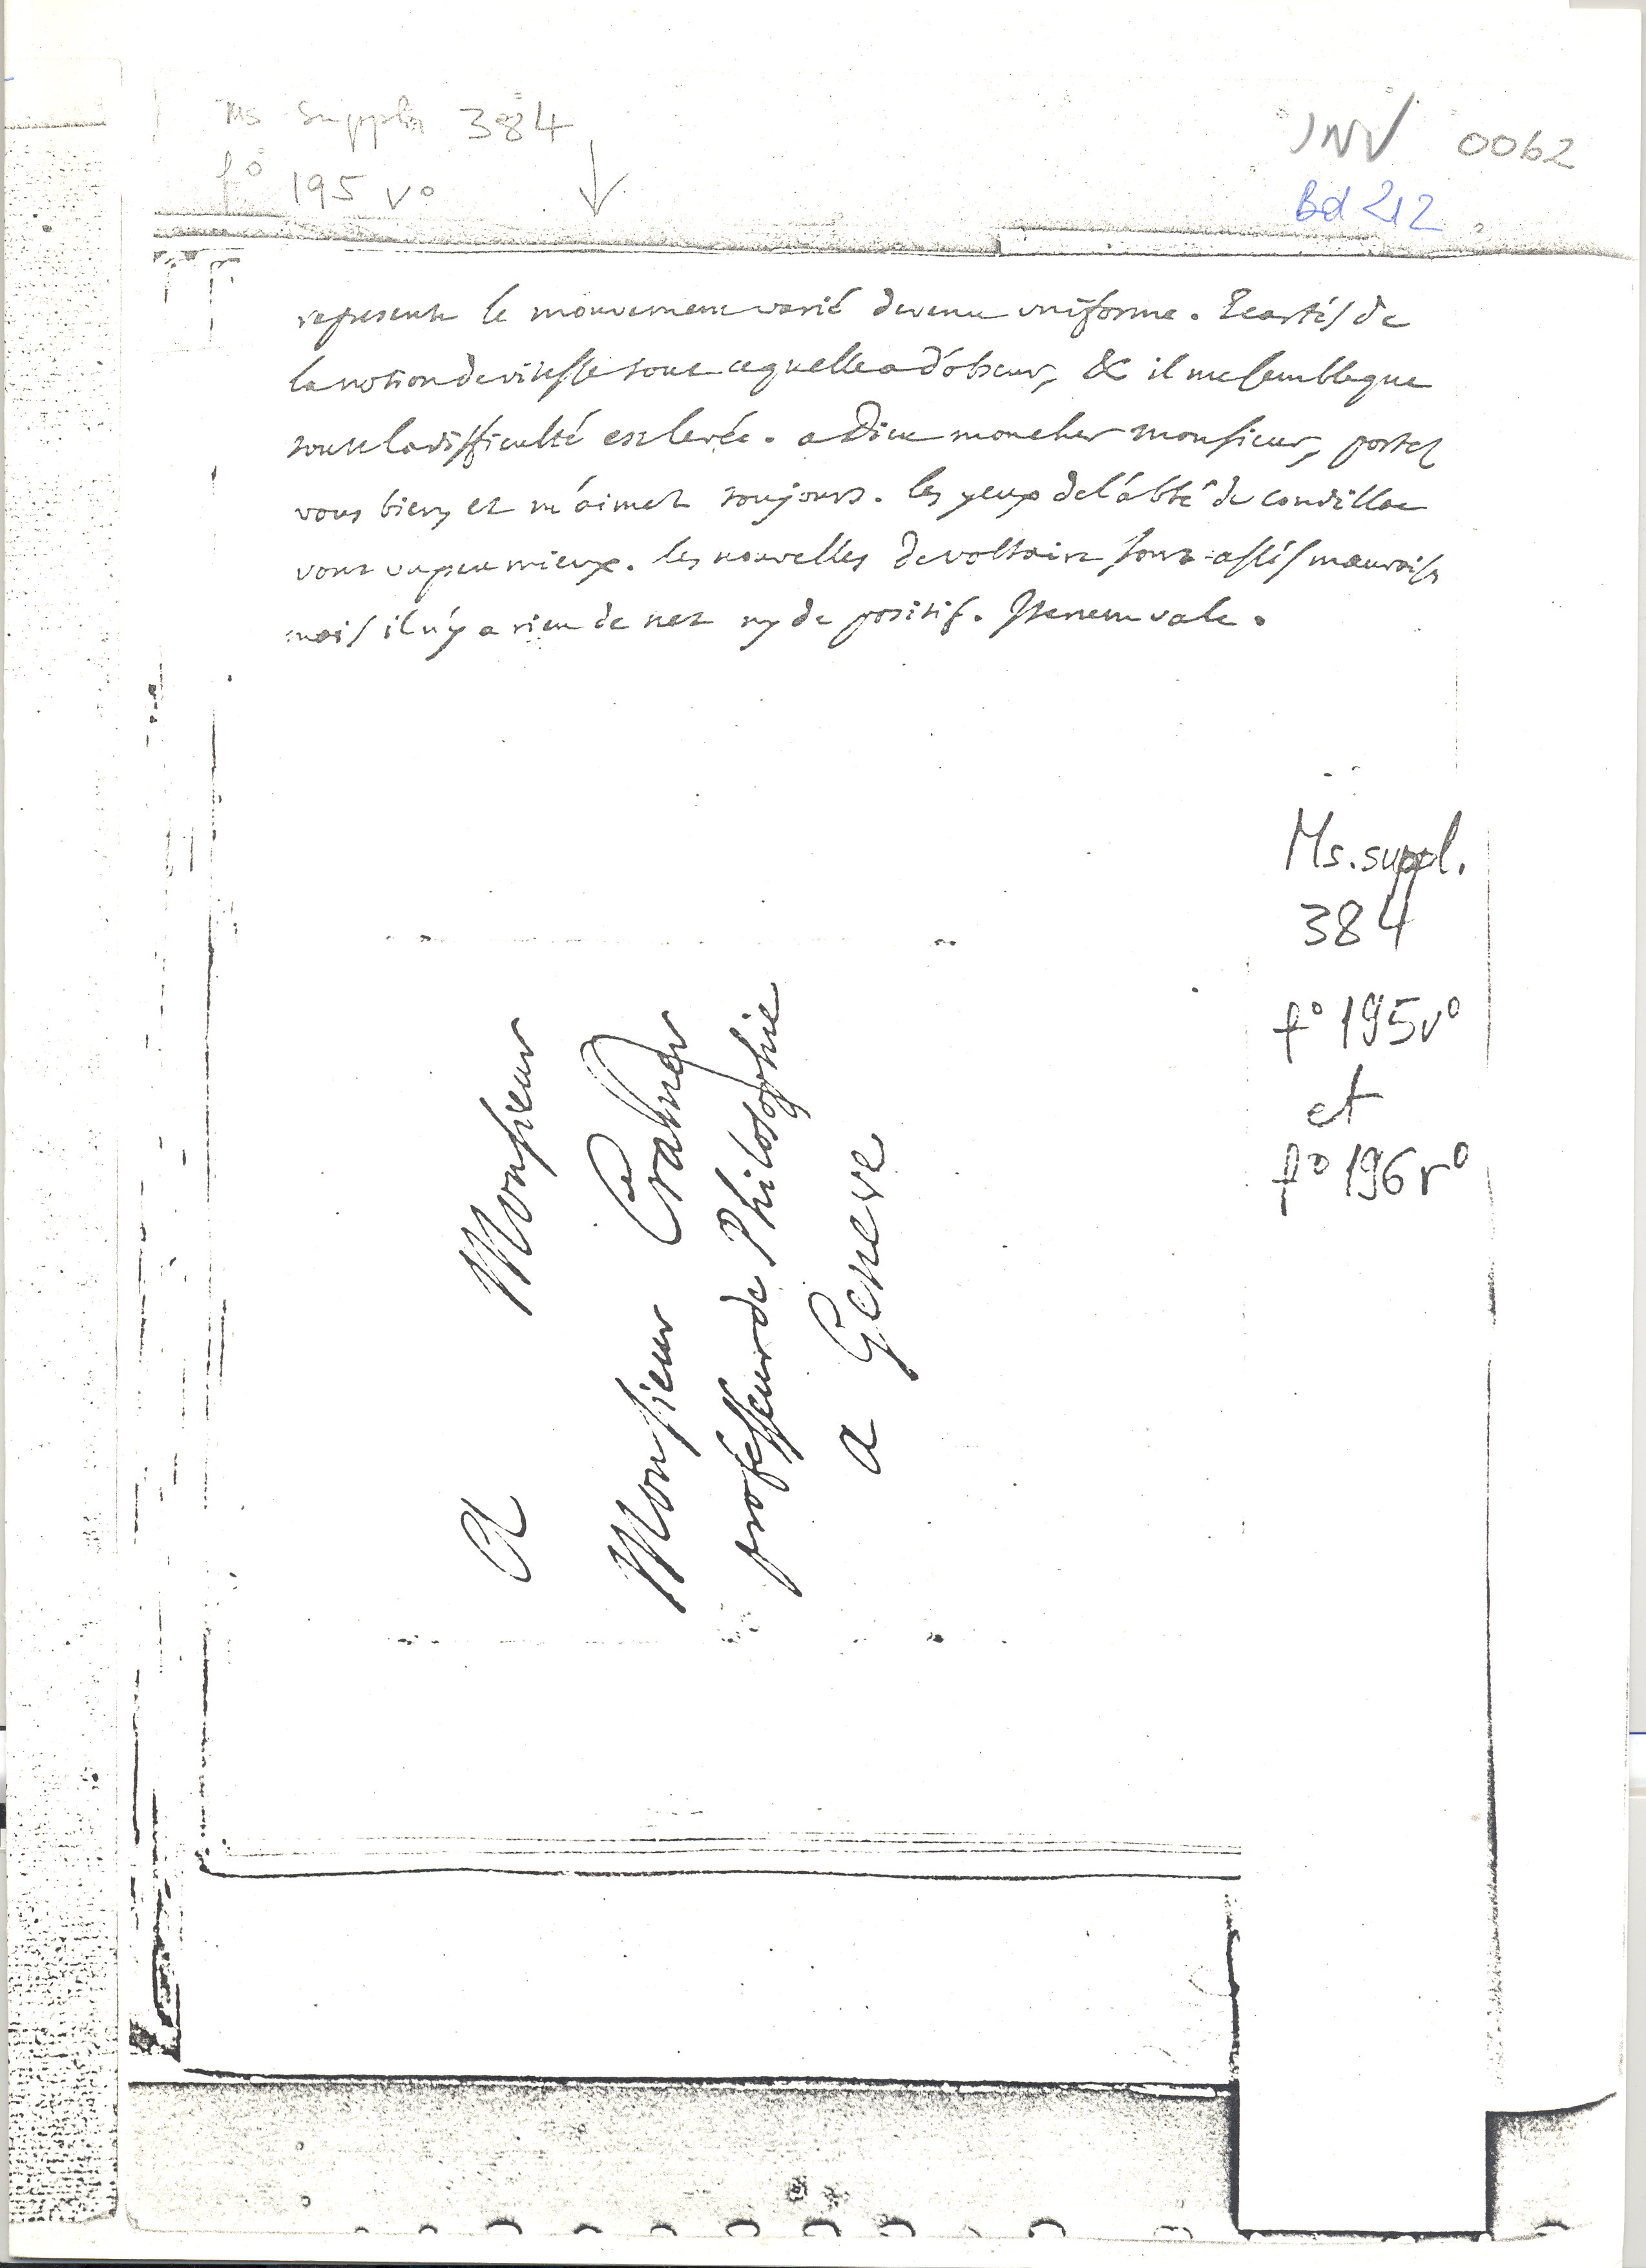 Ms Suppl. 384
f° 195 v°
INV 0062
Bd 212
represente le mouvement varié devenu uniforme. Ecartés de
la notion de vitesse tout ce quelle a d'obscur, & il me semble que
toute la difficulté est levée. a Dieu mon cher monsieur, portez
vous bien et m'aimez toujours. les yeux de l'abbé de condillac
vont un peu mieux. les nouvelles de voltaire sont assés mauvaises
mais il n'y a rien de net ny de positif. Iterum vale.
Ms. suppl.
384
f° 195v°
et
f° 196r°
A Monsieur
Monsieur Cramer
professeur de Philosophie
a Geneve